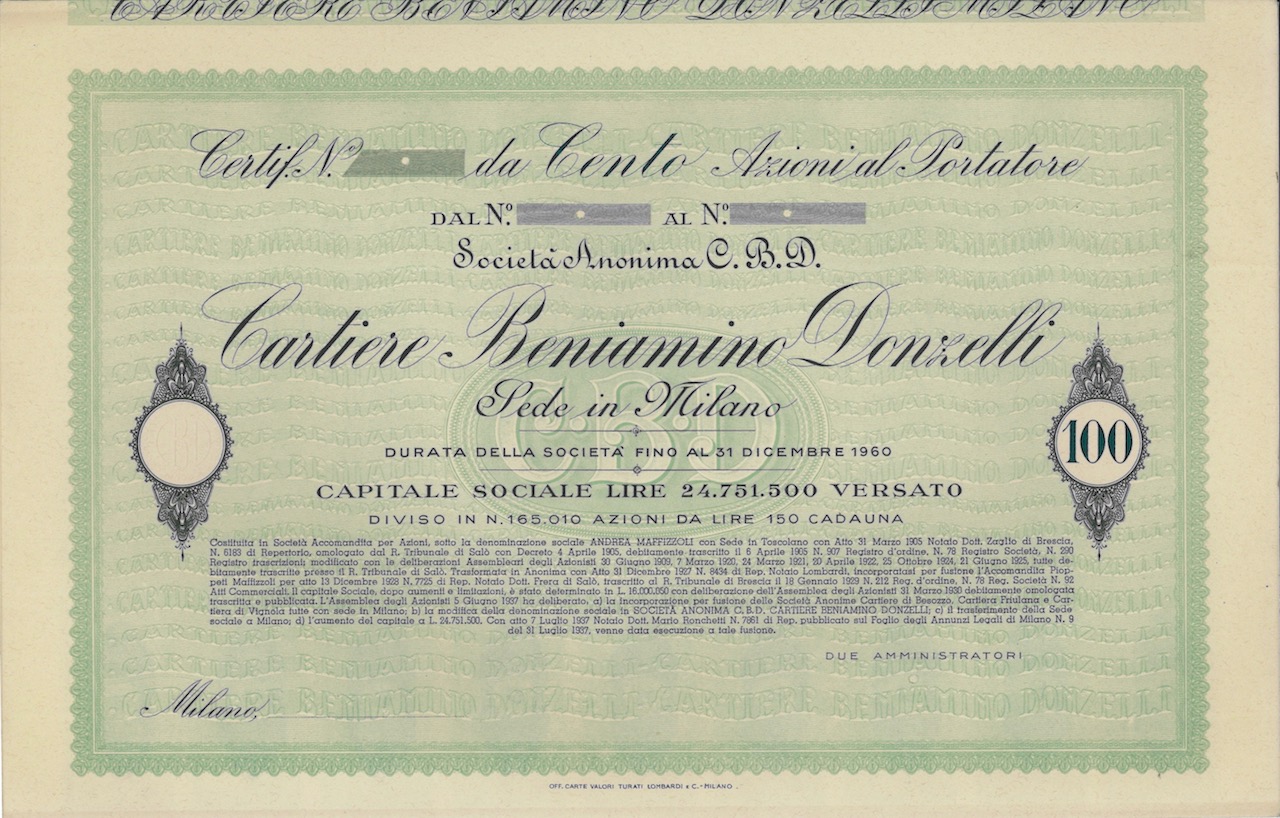 CARTIERE BENIAMINO DONZELLI MILANO
Certif. N.º da Cento Azioni al Portatore
DAL N.º AL N.º
Società Anonima C. B. D.
Cartiere Beniamino Donzelli
Sede in Milano
C·B·D
100
DURATA DELLA SOCIETA' FINO AL 31 DICEMBRE 1960
CAPITALE SOCIALE LIRE 24.751.500 VERSATO
DIVISO IN N. 165.010 AZIONI DA LIRE 150 CADAUNA
Costituita in Società Accomandita per Azioni, sotto la denominazione sociale ANDREA MAFFIZZOLI con Sede in Toscolano con Atto 31 Marzo 1905 Notaio Dott. Zaglio di Brescia,
N. 6183 di Repertorio, omologato dal R. Tribunale di Salò con Decreto 4 Aprile 1905, debitamente trascritto il 6 Aprile 1905 N. 907 Registro d'ordine, N. 78 Registro Società, N. 290
Registro trascrizioni; modificato con le deliberazioni Assembleari degli Azionisti 30 Giugno 1909, 7 Marzo 1920, 24 Marzo 1921, 20 Aprile 1922, 25 Ottobre 1924, 21 Giugno 1925, tutte de-
bitamente trascritte presso il R. Tribunale di Salò. Trasformata in Anonima con Atto 31 Dicembre 1927 N. 8434 di Rep. Notaio Lombardi, incorporatasi per fusione l'Accomandita Piop-
peti Maffizzoli per atto 13 Dicembre 1928 N. 7725 di Rep. Notaio Dott. Frera di Salò, trascritto al R. Tribunale di Brescia il 18 Gennaio 1929 N. 212 Reg. d'ordine, N. 78 Reg. Società N. 92
Atti Commerciali. Il capitale Sociale, dopo aumenti e limitazioni, è stato determinato in L. 16.000.050 con deliberazione dell'Assemblea degli Azionisti 31 Marzo 1930 debitamente omologata
trascritta e pubblicata. L'Assemblea degli Azionisti 5 Giugno 1937 ha deliberato, a) la incorporazione per fusione delle Società Anonime Cartiere di Besozzo, Cartiera Friulana e Car-
tiera di Vignola tutte con sede in Milano; b) la modifica della denominazione sociale in SOCIETÀ ANONIMA C.B.D. CARTIERE BENIAMINO DONZELLI; c) il trasferimento della Sede
sociale a Milano; d) l'aumento del capitale a L. 24.751.500. Con atto 7 Luglio 1937 Notaio Dott. Mario Ronchetti N. 7861 di Rep. pubblicato sul Foglio degli Annunzi Legali di Milano N. 9
del 31 Luglio 1937, venne data esecuzione a tale fusione.
DUE AMMINISTRATORI
Milano,
OFF. CARTE VALORI TURATI LOMBARDI E C. - MILANO.